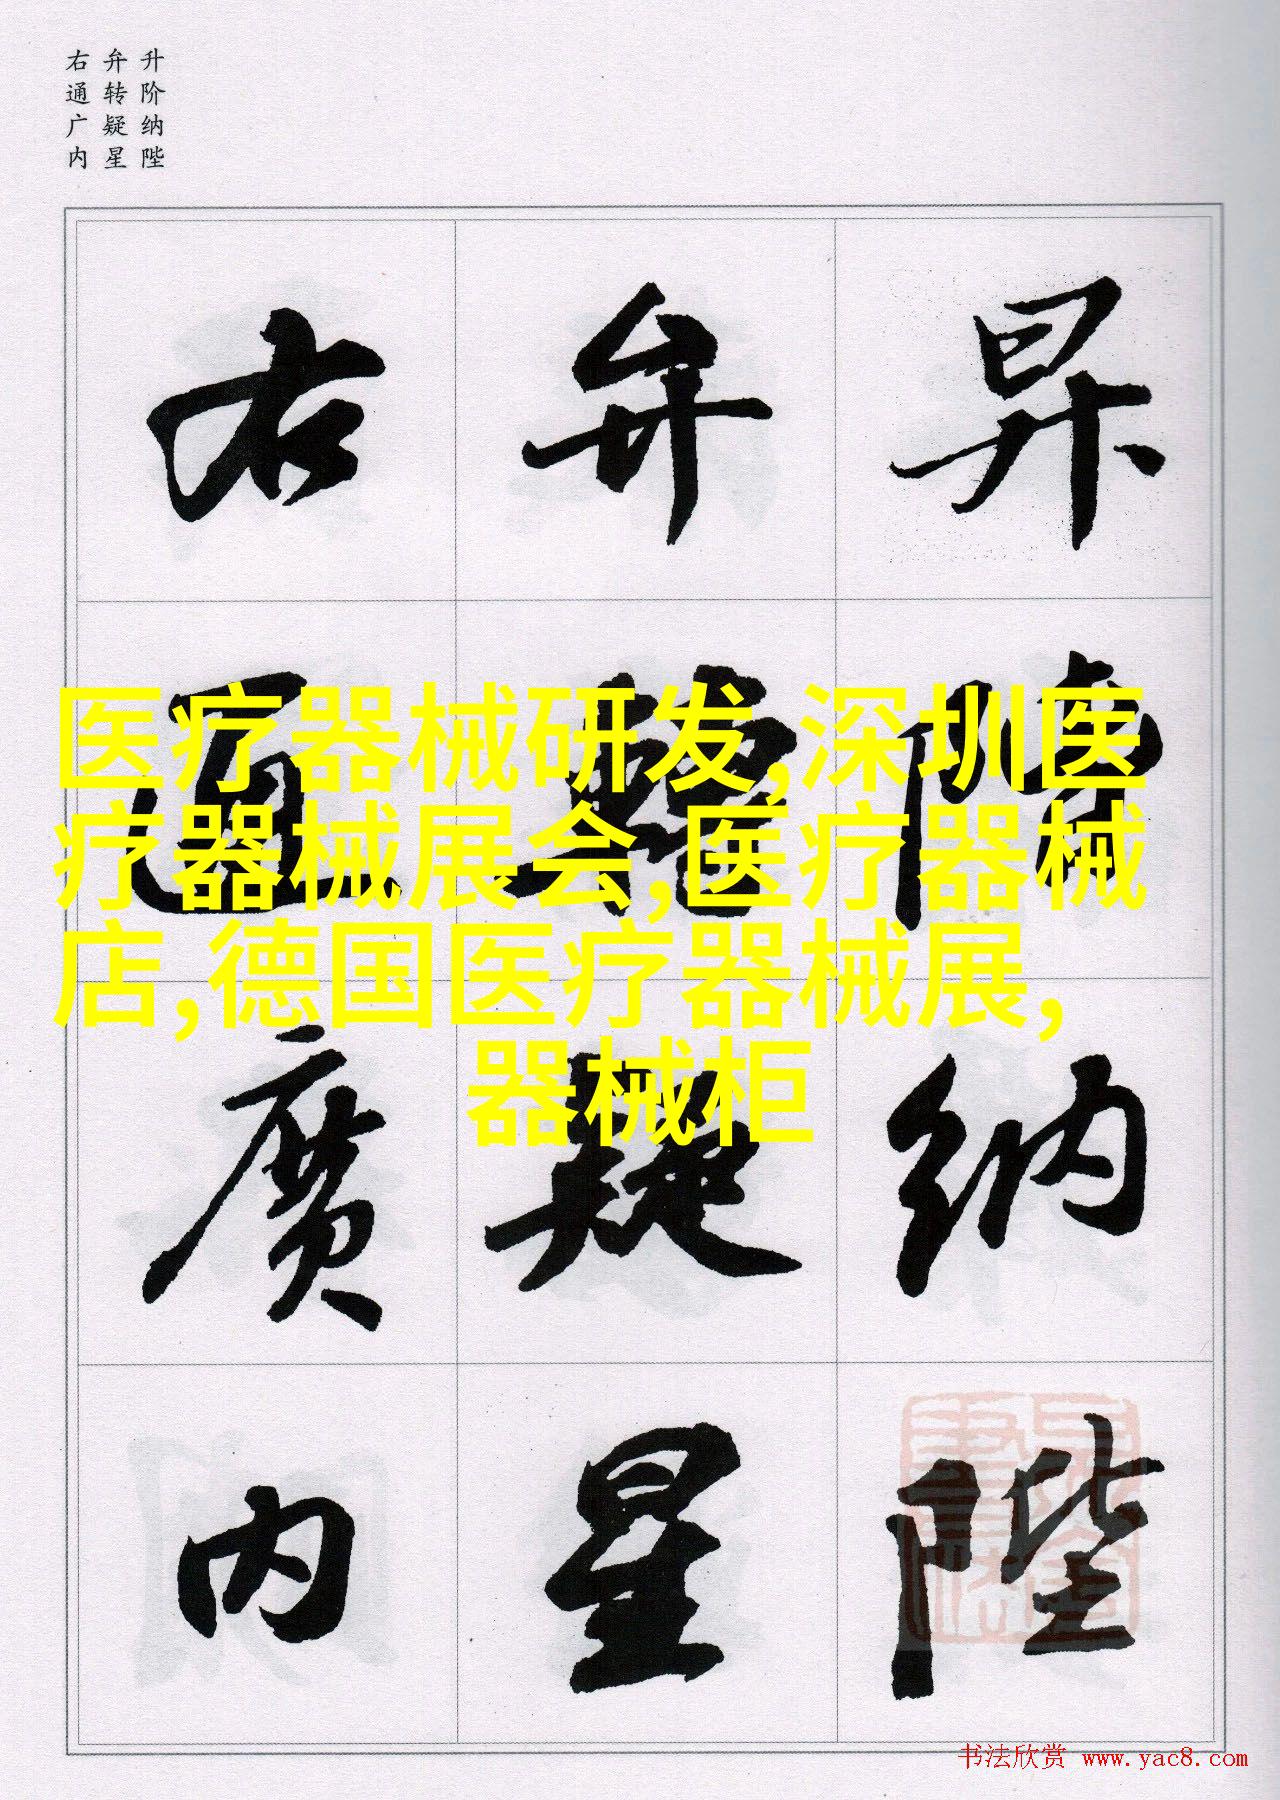 升阶纳陛
弁转疑星
右通广内
昇階納陛
弁轉疑星
右通廣内
医疗器械研发,深圳医
疗器械展会,医疗器械
店,德国医疗器械展,
器械柜
书法欣赏 www.yac8.com